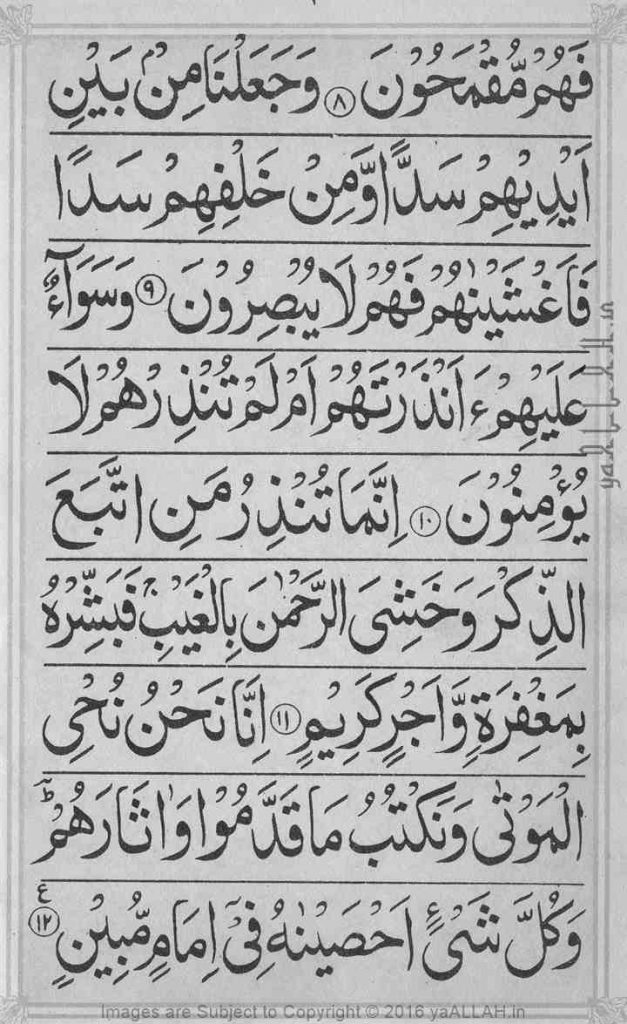 فَهُمْ مُّقْمَحُوْنَ ۝٨ وَجَعَلْنَا مِنْۢ بَيْنِ
اَيْدِيْهِمْ سَدًّا وَّمِنْ خَلْفِهِمْ سَدًّا
فَاَغْشَيْنٰهُمْ فَهُمْ لَا يُبْصِرُوْنَ ۝٩ وَسَوَآءٌ
عَلَيْهِمْ ءَاَنْذَرْتَهُمْ اَمْ لَمْ تُنْذِرْهُمْ لَا
يُؤْمِنُوْنَ ۝١٠ اِنَّمَا تُنْذِرُ مَنِ اتَّبَعَ
الذِّكْرَ وَخَشِىَ الرَّحْمٰنَ بِالْغَيْبِ ۚ فَبَشِّرْهُ
بِمَغْفِرَةٍ وَّاَجْرٍ كَرِيْمٍ ۝١١ اِنَّا نَحْنُ نُحْىِ
الْمَوْتٰى وَنَكْتُبُ مَا قَدَّمُوْا وَاٰثَارَهُمْ ؕ
وَكُلَّ شَىْءٍ اَحْصَيْنٰهُ فِىْٓ اِمَامٍ مُّبِيْنٍ ۝١٢ ع
yaALLAH.in
Images are Subject to Copyright © 2016 yaALLAH.in